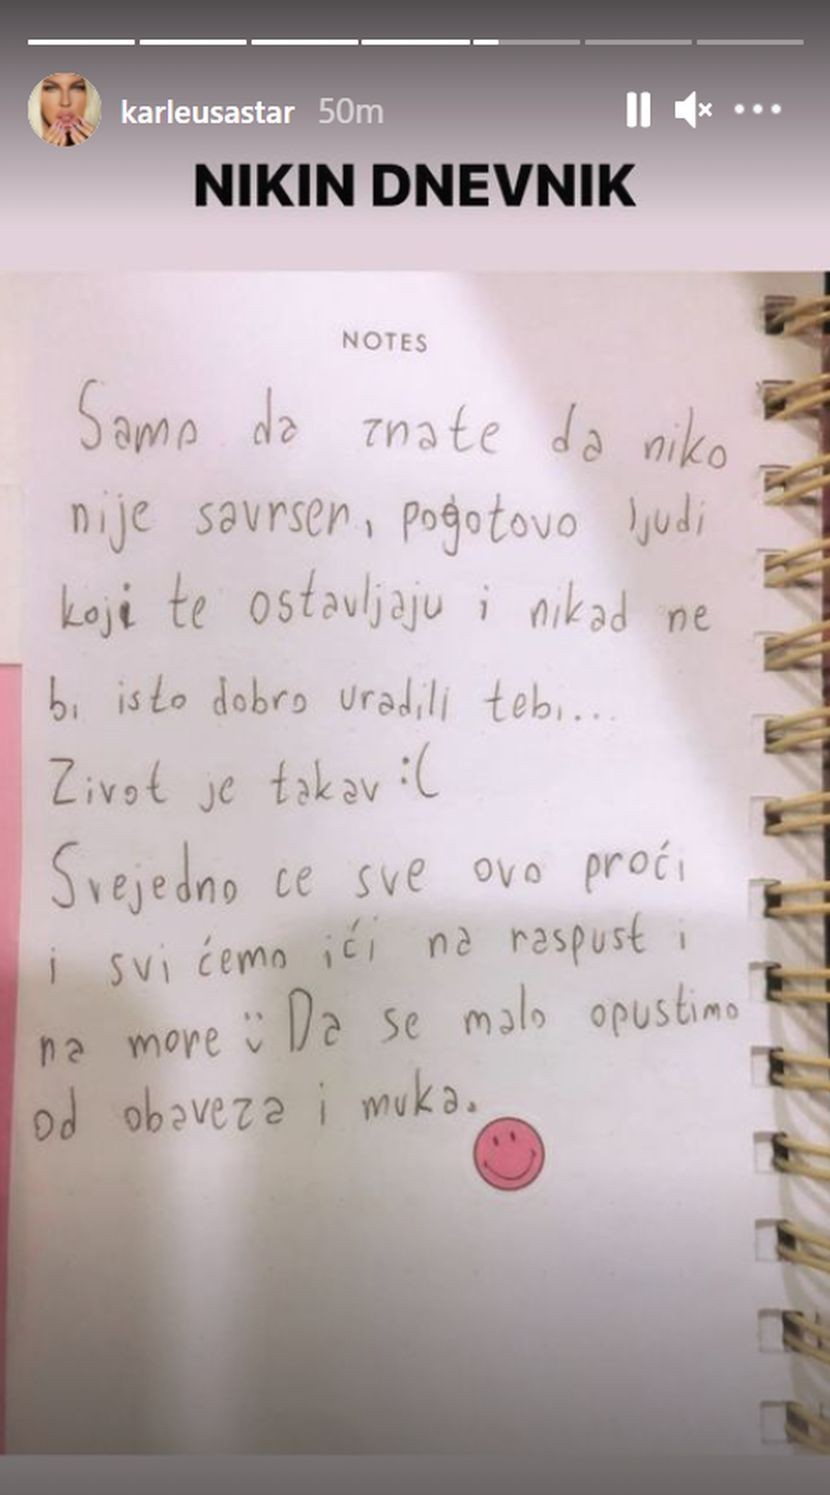 karleusastar 50m
NIKIN DNEVNIK
NOTES
Samo da znate da niko
nije savrsen, pogotovo ljudi
koji te ostavljaju i nikad ne
bi isto dobro uradili tebi...
Zivot je takav :(
Svejedno ce sve ovo proći
i svi ćemo ići na raspust i
na more :) Da se malo opustimo
od obaveza i muka.